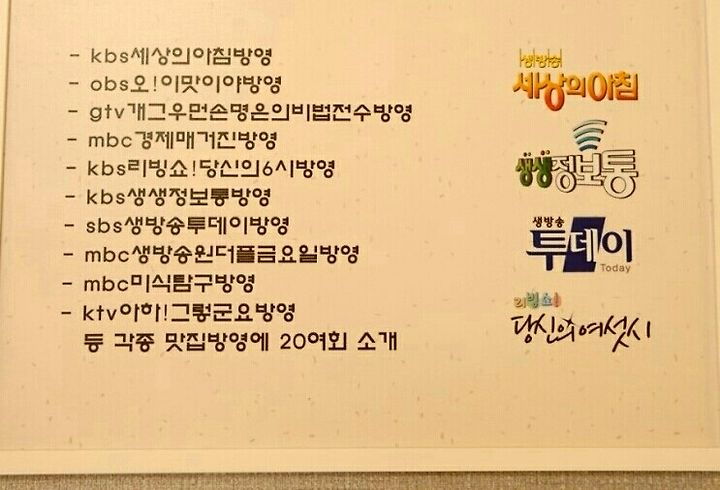 - kbs세상의아침방영
- obs오!이맛이야방영
- gtv개그우먼손명은의비법전수방영
- mbc경제매거진방영
- kbs리빙쇼!당신의6시방영
- kbs생생정보통방영
- sbs생방송투데이방영
- mbc생방송원더플금요일방영
- mbc미식탐구방영
- ktv아하!그렇군요방영
등 각종 맛집방영에 20여회 소개
생방송
세상의아침
생생정보통
생방송
투데이
Today
리빙쇼!
당신의여섯시